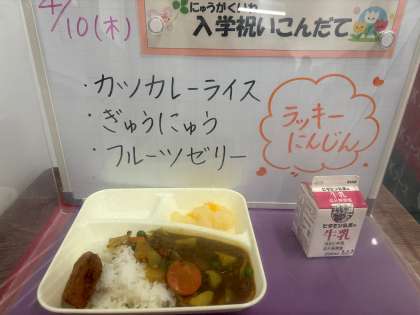 4/10(木)
にゅうがくいわ
入学祝いこんだて
・カツカレーライス
・ぎゅうにゅう
・フルーツゼリー
ラッキー
にんじん
牛乳
牛乳